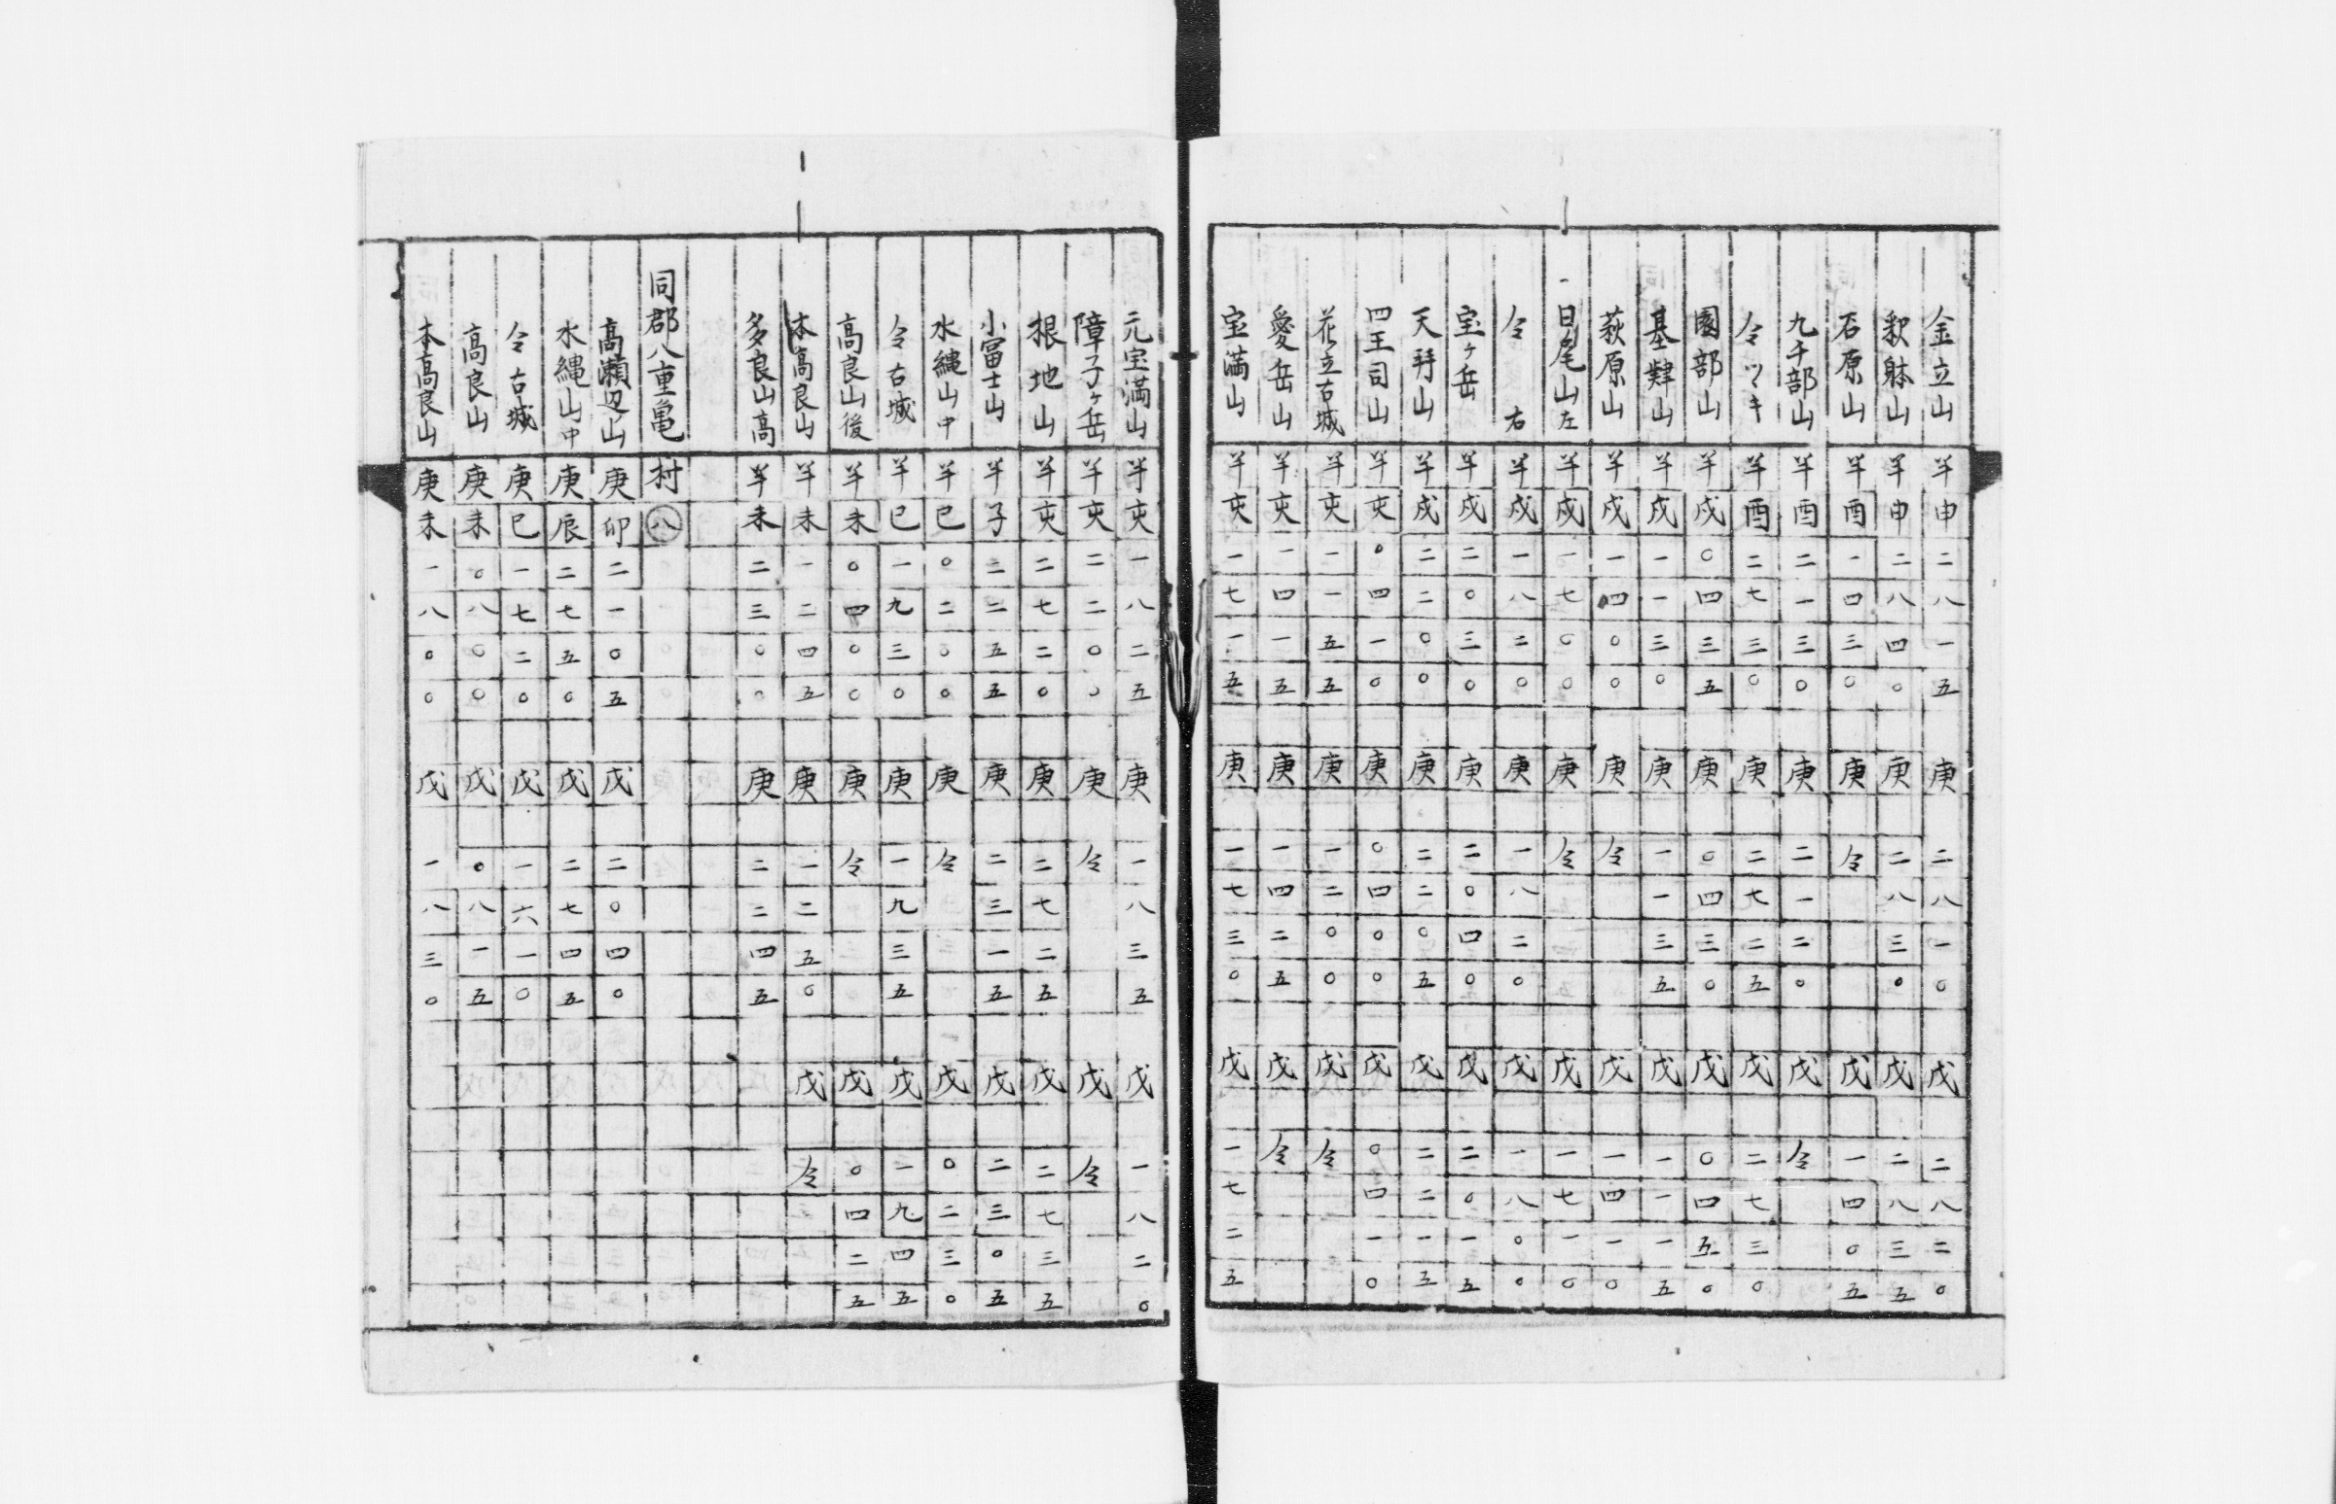 金立山 半申 二八一五 庚 二八一〇 戊 二八二〇
釈躰山 半申 二八四〇 庚 二八三〇 戊 二八三五
石原山 半酉 一四三〇 庚 仝 戊 一四〇五
九千部山 半酉 二一三〇 庚 二一二〇 戊 仝
仝ツヽキ 半酉 二七三〇 庚 二七二五 戊 二七三〇
園部山 半戌 〇四三五 庚 〇四三〇 戊 〇四五〇
基肄山 半戌 一一三〇 庚 一一三五 戊 一一一五
萩原山 半戌 一四〇〇 庚 仝 戊 一四一〇
日ノ尾山左 半戌 一七〇〇 庚 仝 戊 一七一〇
仝右 半戌 一八二〇 庚 一八二〇 戊 一八〇〇
宝ヶ岳 半戌 二〇三〇 庚 二〇四〇 戊 二〇一五
天拜山 半戌 二二〇〇 庚 二二〇五 戊 二二一五
四王司山 半亥 〇四一〇 庚 〇四〇〇 戊 〇四一〇
花立古城 半亥 一一五五 庚 一二〇〇 戊 仝
愛岳山 半亥 一四一五 庚 一四二五 戊 仝
宝満山 半亥 一七一五 庚 一七三〇 戊 一七二五
元宝満山 半亥 一八二五 庚 一八三五 戊 一八二〇
障子ヶ岳 半亥 二二〇〇 庚 仝 戊 仝
根地山 半亥 二七二〇 庚 二七二五 戊 二七三五
小富士山 半子 二二五五 庚 二三一五 戊 二三〇五
水縄山中 半巳 〇二〇〇 庚 仝 戊 〇二三〇
仝古城 半巳 一九三〇 庚 一九三五 戊 一九四五
高良山後 半未 〇四〇〇 庚 仝 戊 〇四二五
本高良山 半未 一二四五 庚 一二五〇 戊 仝
多良山高 半未 二三〇〇 庚 二二四五
同郡八重亀村 八
高瀬辺山 庚卯 二一〇五 戊 二〇四〇
水縄山中 庚辰 二七五〇 戊 二七四五
仝古城 庚巳 一七二〇 戊 一六一〇
高良山 庚未 〇八〇〇 戊 〇八一五
本高良山 庚未 一八〇〇 戊 一八三〇